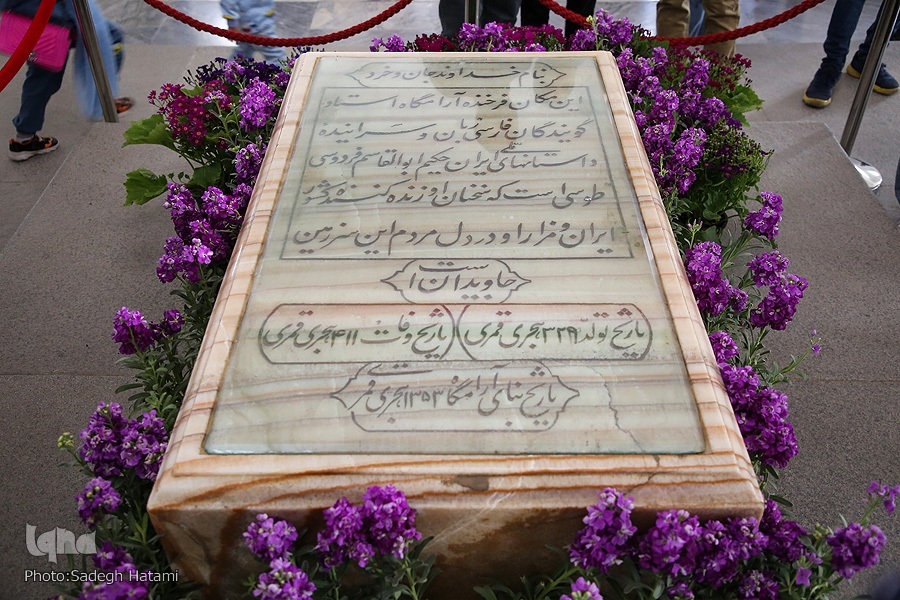 بنام خداوند جان و خرد
این مکان فرخنده آرامگاه استاد
گویندگان فارسی زبان و سراینده
داستانهای ملی ایران حکیم ابوالقاسم فردوسی
طوسی است که سخنان او زنده کننده کشور
ایران و مزار او در دل مردم این سرزمین
جاویدان است
تاریخ تولد ۳۲۹ هجری قمری
تاریخ وفات ۴۱۱ هجری قمری
تاریخ بنای آرامگاه ۱۳۵۳ هجری قمری
iqna
Photo:Sadegh Hatami